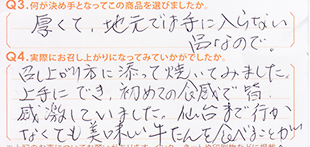 Q3.何が決め手となってこの商品を選びましたか。
厚くて、地元では手に入らない
品なので。
Q4.実際にお召し上がりになってみていかがでしたか。
召し上がり方に添って焼いてみました。
上手にでき、初めての食感で皆
感激していました。仙台まで行か
なくても美味しい牛たんを食べることが